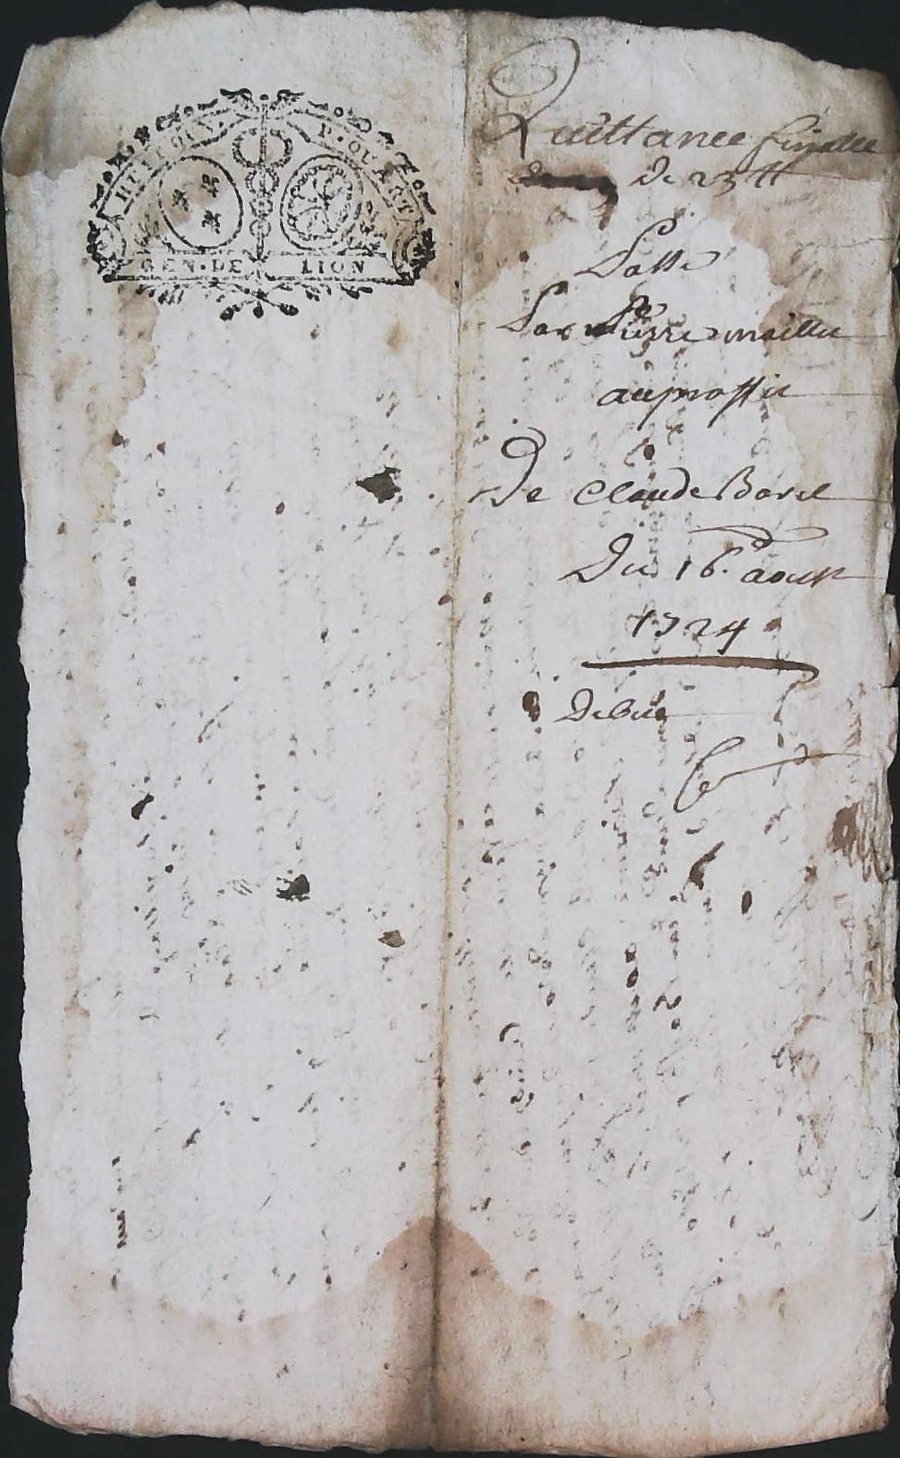 HUIT DEN. P. QUART
GEN. DE LION
Quittance finalle
de 25 tt
Passé
Par Pierre maillet
au proffit
De Claude Borel
Du 16e aoust
1724